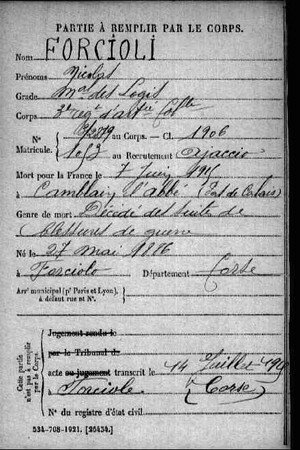 PARTIE À REMPLIR PAR LE CORPS.
Nom FORCIOLI
Prénoms Nicolas
Grade Mal des Logis
Corps 3e regt d'artie
N° au Corps. — Cl. 1906
Matricule. 1053 au Recrutement Ajaccio
Mort pour la France le 7 Juin 1915
à Camblain l'abbé (Pas de Calais)
Genre de mort Décédé des suites de
blessures de guerre
Né le 27 mai 1886
à Forciolo Département Corse
Arrt municipal (pr Paris et Lyon),
à défaut rue et N°.
Cette partie n'est pas à remplir par le Corps.
Jugement rendu le
par le Tribunal de
acte ou jugement transcrit le 14 Juillet
à Forciolo (Corse)
N° du registre d'état civil
534-708-1921. [26434.]